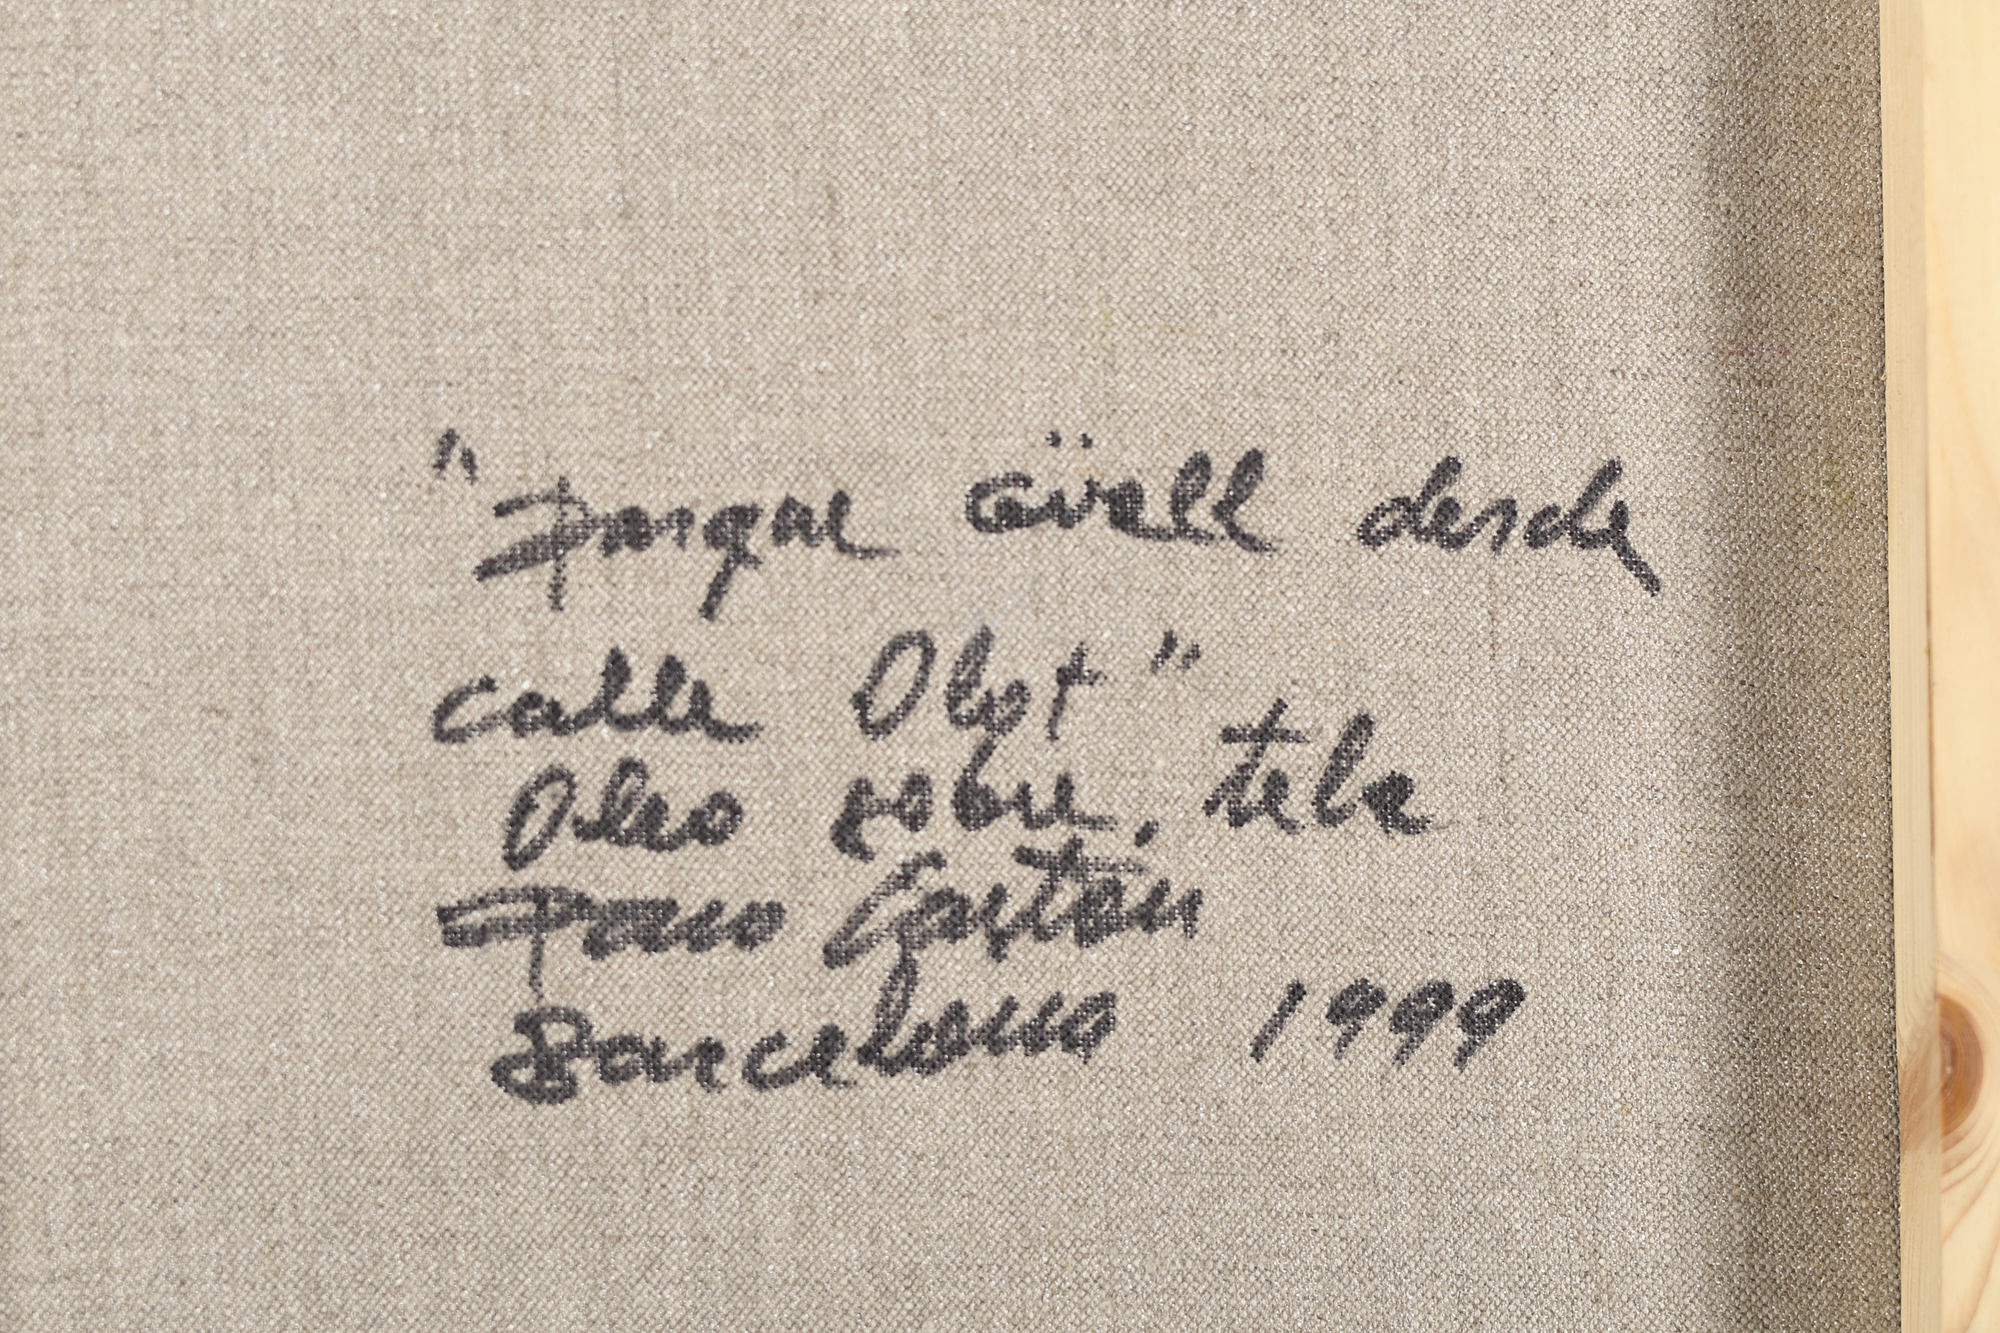 "Parque Güell desde
calle Olot"
Oleo sobre tela
Paco Gastón
Barcelona 1999